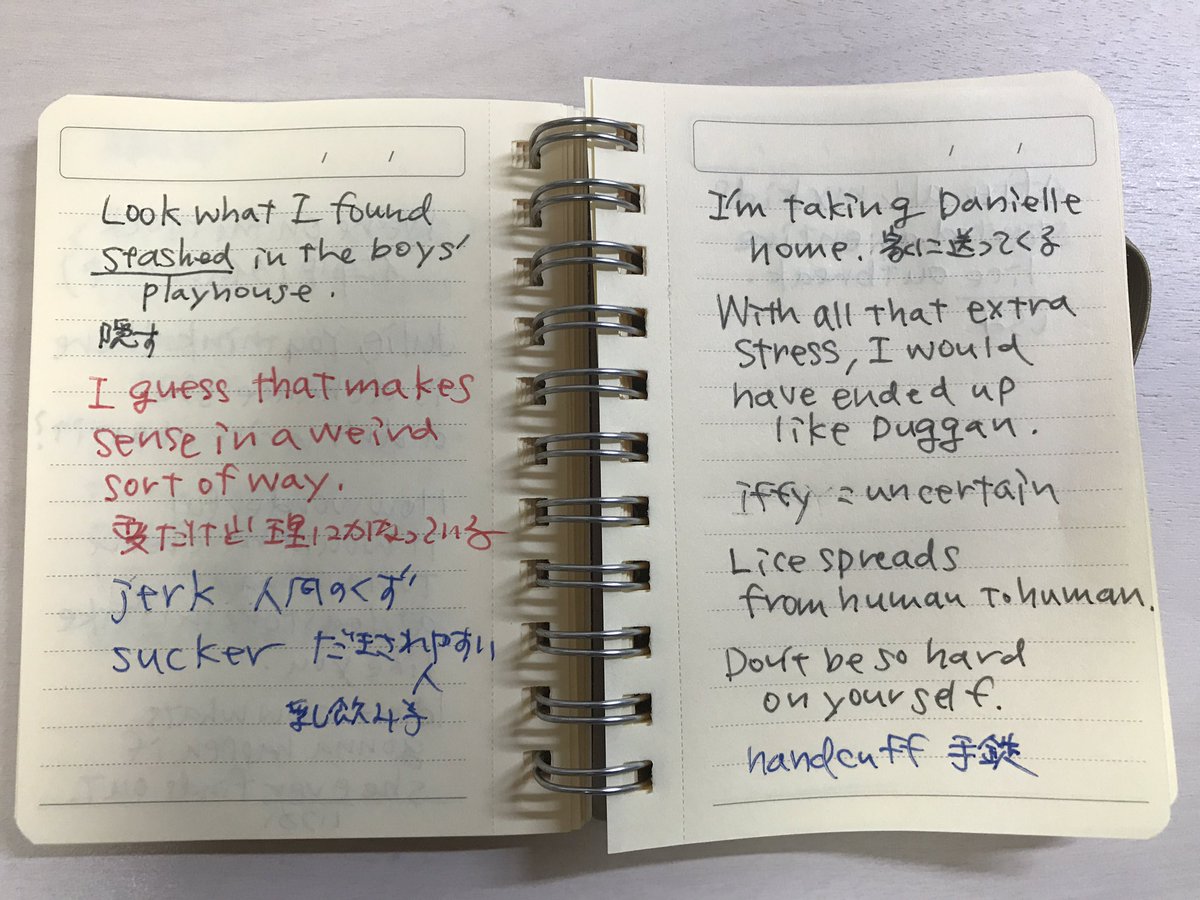 Look what I found
stashed in the boys'
playhouse.
隠す
I guess that makes
sense in a weird
sort of way.
変だけど理にかなっている
jerk 人間のくず
sucker だまされやすい
人
乳飲み子
I'm taking Danielle
home. 家に送ってくる
With all that extra
stress, I would
have ended up
like Duggan.
iffy = uncertain
Lice spreads
from human to human.
Don't be so hard
on yourself.
handcuff 手錠